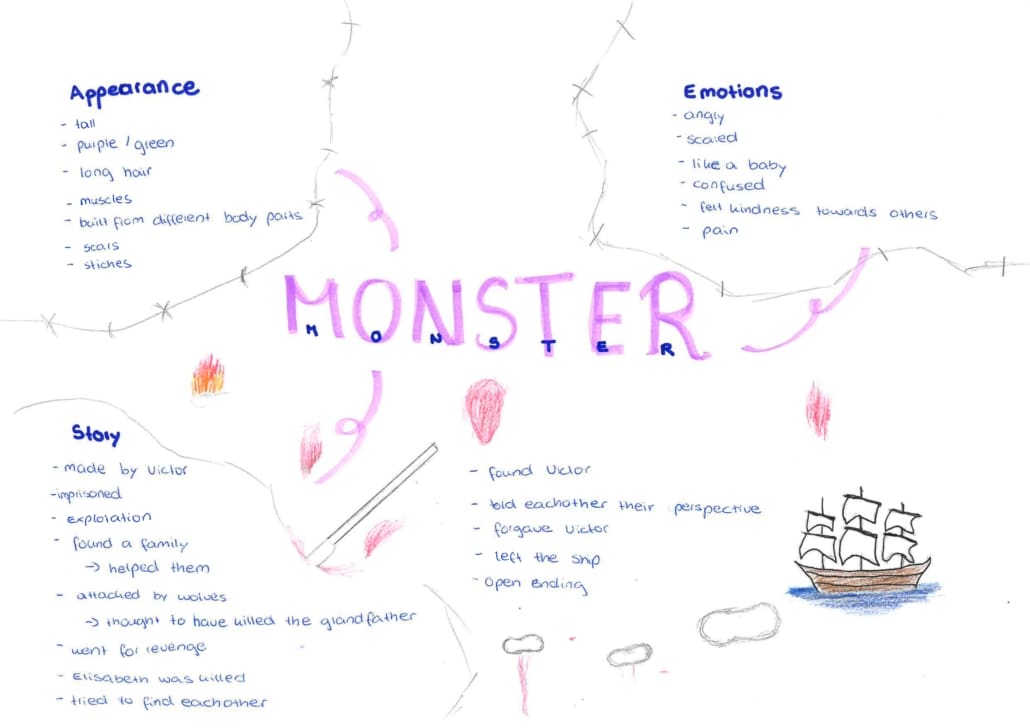 Appearance
- tall
- purple / green
- long hair
- muscles
- built from different body parts
- scars
- stiches
Emotions
- angry
- scared
- like a baby
- confused
- felt kindness towards others
- pain
MONSTER
MONSTER
Story
- made by Victor
- imprisoned
- Exploration
- found a family
→ helped them
- attacked by wolves
→ thought to have killed the grandfather
- went for revenge
- Elisabeth was killed
- tried to find eachother
- found Victor
- told eachother their perspective
- forgave Victor
- left the ship
- Open ending